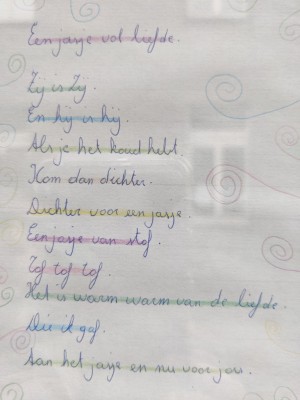 Een jasje vol liefde.
Zij is zij.
En hij is hij.
Als je het koud hebt.
Kom dan dichter.
Dichter voor een jasje.
Een jasje van stof.
Tof tof tof.
Het is warm warm van de liefde.
Die ik gaf.
Aan het jasje en nu voor jou.